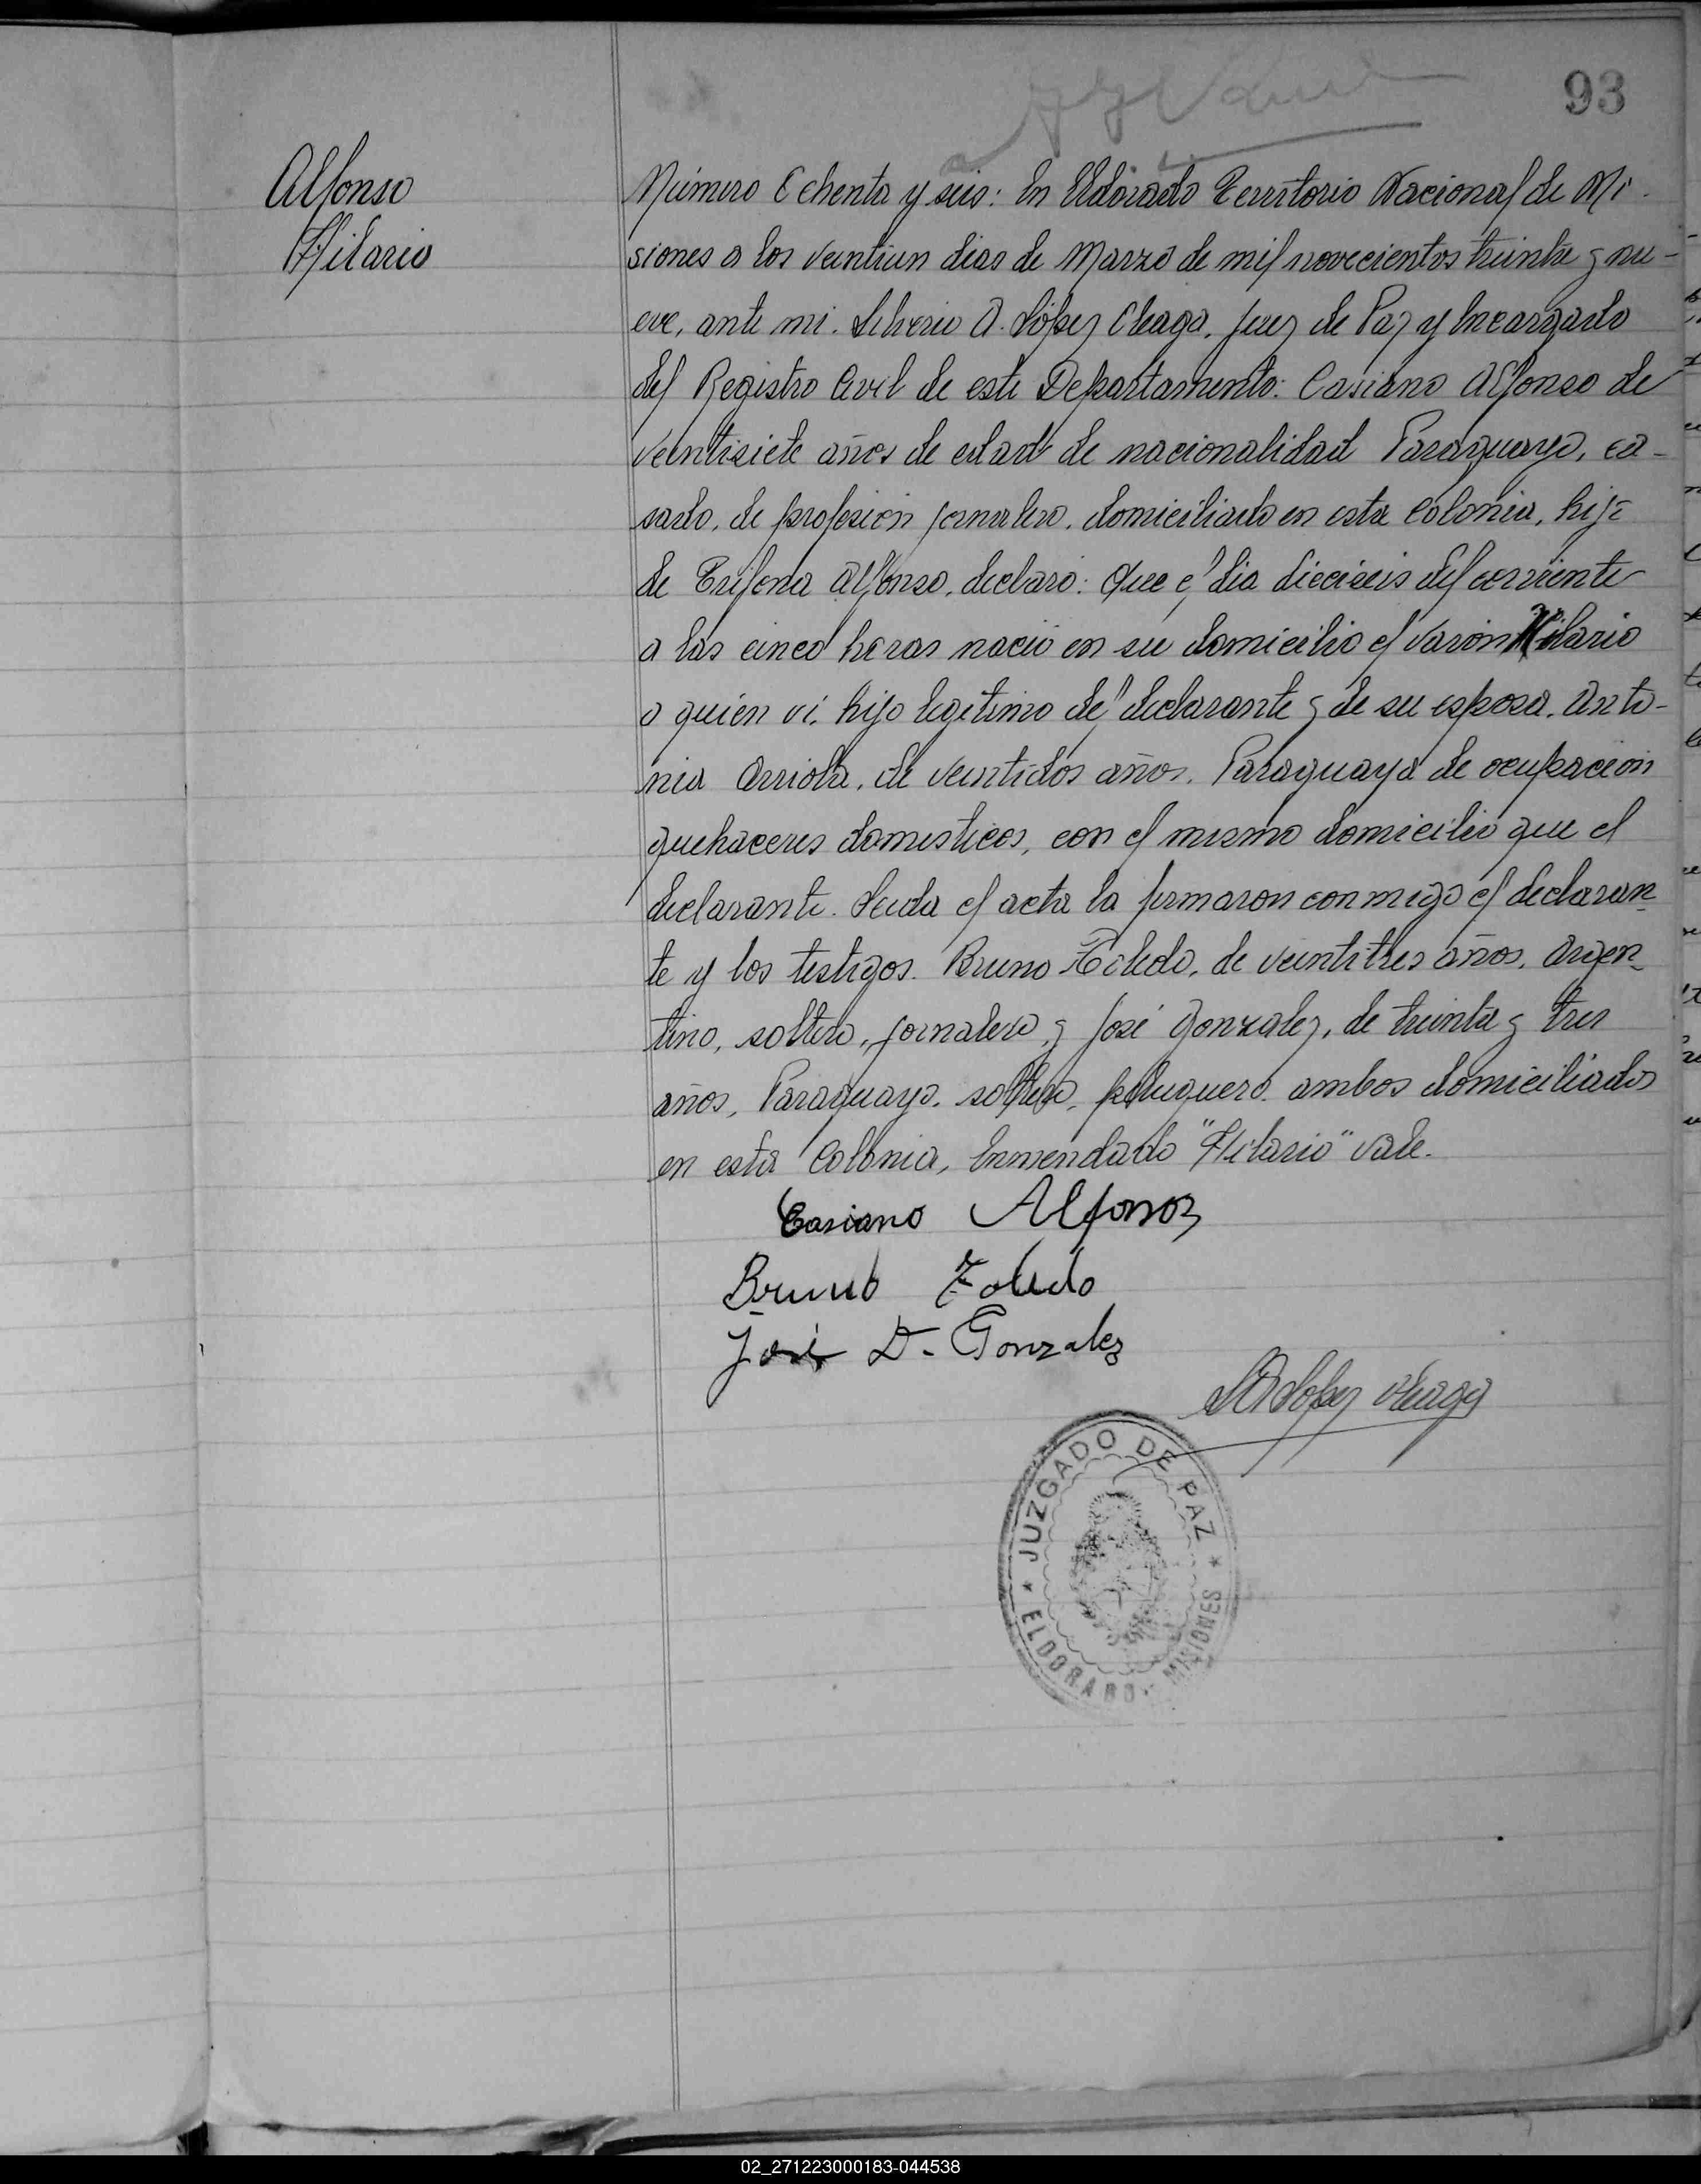 93
Alfonso
Hilario
Número Ochenta y seis: En Eldorado Territorio Nacional de Mi-
siones a los veintiun dias de Marzo de mil novecientos treinta y nu-
eve, ante mi. Silverio A. López Cheaga, Juez de Paz y Encargado
del Registro Civil de este Departamento: Casiano Alfonso de
veintisiete años de edad de nacionalidad Paraguayo, ca-
sado, de profesión jornalero, domiciliado en esta Colonia, hijo
de Trifona Alfonso, declaro: Que el dia dieciseis del corriente
a las cinco horas nació en su domicilio el varón Hilario
a quien vi, hijo legitimo del declarante y de su esposa, Anto-
nia Arriola, de veintidos años, Paraguaya de ocupación
quehaceres domesticos, con el mismo domicilio que el
declarante. Leida el acta la firmaron conmigo el declaran-
te y los testigos. Bruno Toledo, de veintitres años, Argen-
tino, soltero, jornalero, y José Gonzalez, de treinta y tres
años, Paraguayo, soltero, peluquero, ambos domiciliados
en esta Colonia, Enmendado "Hilario" vale.
Casiano Alfonso
Bruno Toledo
José D. Gonzalez
SA López Cheaga
JUZGADO DE PAZ
* ELDORADO - MISIONES *
02_271223000183-044538